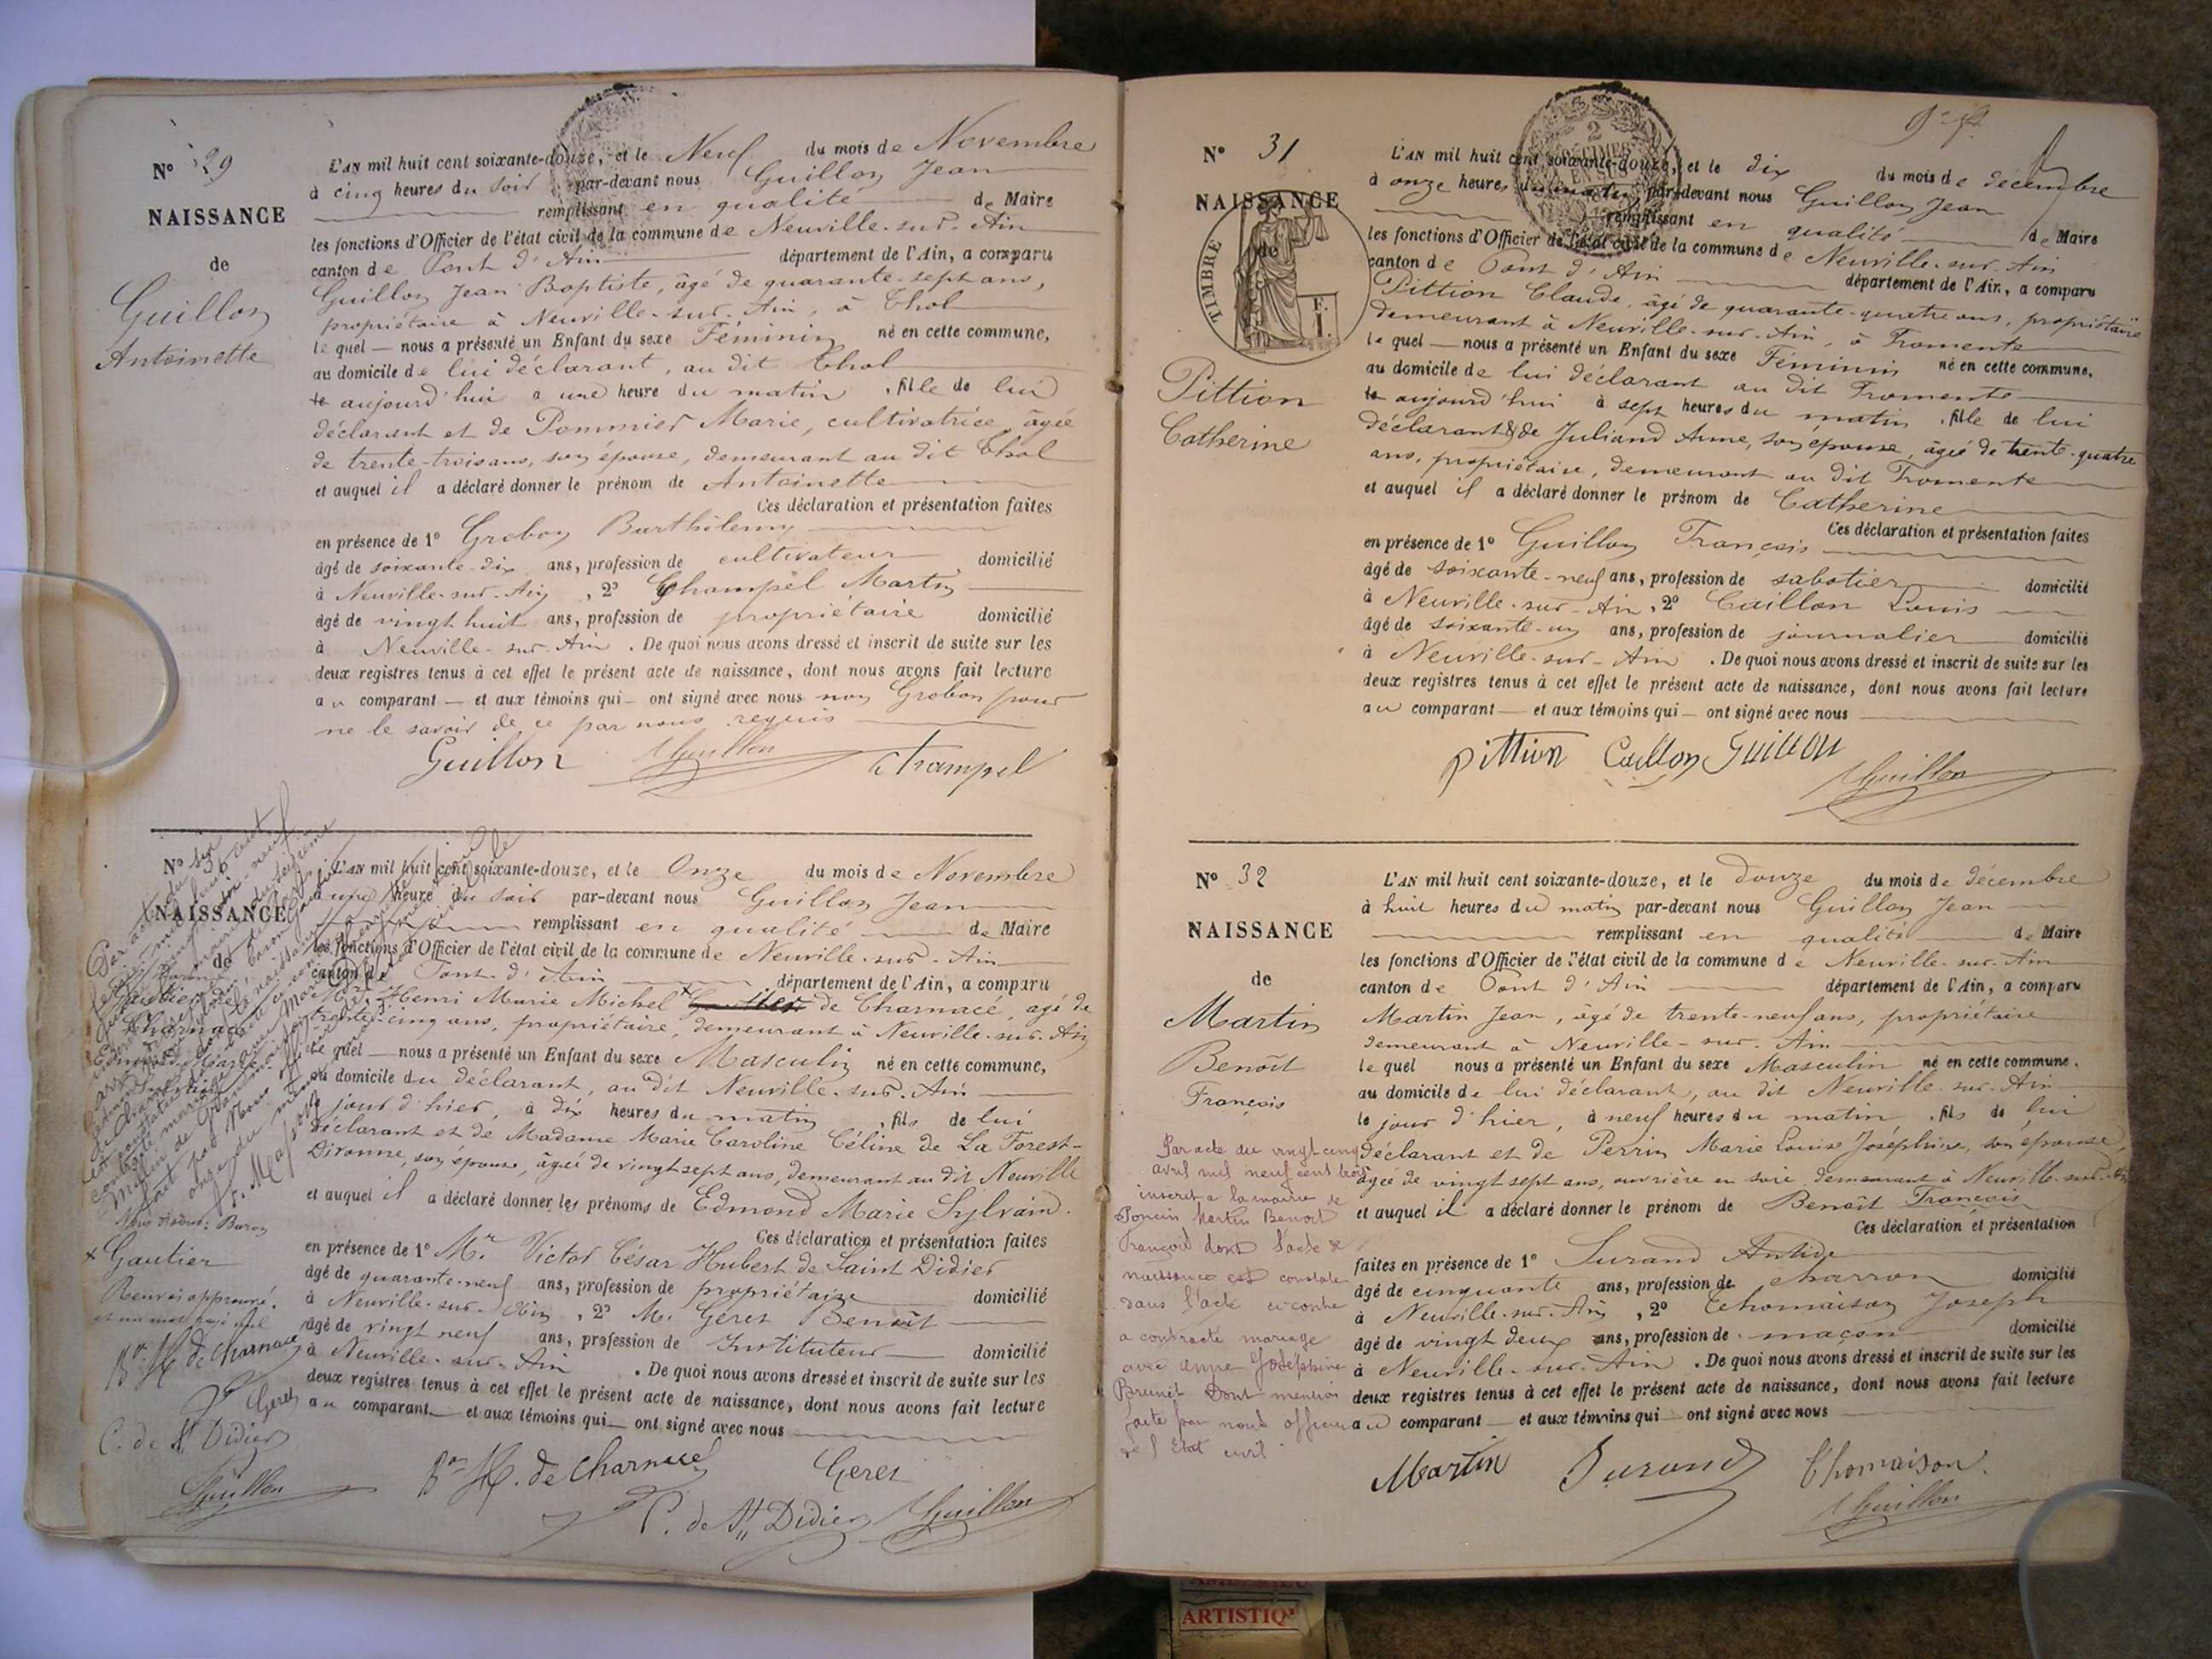 N° 29
NAISSANCE
de
Guillon
Antoinette
L'AN mil huit cent soixante-douze, et le Neuf du mois de Novembre
à cinq heures du soir par-devant nous Guillon Jean
remplissant en qualité de Maire
les fonctions d'Officier de l'état civil de la commune de Neuville-sur-Ain
canton de Pont d'Ain département de l'Ain, a comparu
Guillon Jean Baptiste, âgé de quarante-sept ans,
propriétaire à Neuville-sur-Ain, à Thol
lequel nous a présenté un Enfant du sexe Féminin né en cette commune,
au domicile de lui déclarant, au dit Thol
le aujourd'hui à une heure du matin, fille de lui
déclarant et de Pommier Marie, cultivatrice, âgée
de trente-trois ans, son épouse, demeurant au dit Thol
et auquel il a déclaré donner le prénom de Antoinette
Ces déclaration et présentation faites
en présence de 1° Grobon Barthélemy
âgé de soixante-dix ans, profession de cultivateur domicilié
à Neuville-sur-Ain, 2° Champel Martin
âgé de vingt huit ans, profession de propriétaire domicilié
à Neuville-sur-Ain. De quoi nous avons dressé et inscrit de suite sur les
deux registres tenus à cet effet le présent acte de naissance, dont nous avons fait lecture
au comparant et aux témoins qui ont signé avec nous non Grobon pour
ne le savoir de ce par nous requis
Guillon Guillon Champel
N° 30
NAISSANCE
de
Gautier de
Charnacé
Edmond Marie
Sylvain
L'AN mil huit cent soixante-douze, et le Onze du mois de Novembre
à une heure du soir par-devant nous Guillon Jean
remplissant en qualité de Maire
les fonctions d'Officier de l'état civil de la commune de Neuville-sur-Ain
canton de Pont-d'Ain département de l'Ain, a comparu
Mr Henri Marie Michel de Charnacé, âgé de
trente-cinq ans, propriétaire, demeurant à Neuville-sur-Ain
lequel nous a présenté un Enfant du sexe Masculin né en cette commune,
au domicile du déclarant, au dit Neuville-sur-Ain
le jour d'hier, à dix heures du matin, fils de lui
déclarant et de Madame Marie Caroline Céline de La Forest-
Divonne, son épouse, âgée de vingt sept ans, demeurant au dit Neuville
et auquel il a déclaré donner les prénoms de Edmond Marie Sylvain.
Ces déclaration et présentation faites
en présence de 1° Mr Victor César Hubert de Saint Didier
âgé de quarante-neuf ans, profession de propriétaire domicilié
à Neuville-sur-Ain, 2° M. Geret Benoît
âgé de vingt neuf ans, profession de Instituteur domicilié
à Neuville-sur-Ain. De quoi nous avons dressé et inscrit de suite sur les
deux registres tenus à cet effet le présent acte de naissance, dont nous avons fait lecture
au comparant et aux témoins qui ont signé avec nous
× Gautier
Renvoi approuvé.
Bon H. de Charnacé
Geret
C. de St Didier
Guillon
Bon H. de Charnacé Geret
C. de St Didier Guillon
N° 31
NAISSANCE
de
TIMBRE
F.
1.
2
DÉCIMES
EN SUS
Pittion
Catherine
L'AN mil huit cent soixante-douze, et le dix du mois de décembre
à onze heures du matin par-devant nous Guillon Jean
remplissant en qualité de Maire
les fonctions d'Officier de l'état civil de la commune de Neuville-sur-Ain
canton de Pont d'Ain département de l'Ain, a comparu
Pittion Claude, âgé de quarante-quatre ans, propriétaire
demeurant à Neuville-sur-Ain, à Fromente
lequel nous a présenté un Enfant du sexe Féminin né en cette commune,
au domicile de lui déclarant au dit Fromente
le aujourd'hui à sept heures du matin, fille de lui
déclarant & de Juliand Anne, son épouse, âgée de trente-quatre
ans, propriétaire, demeurant au dit Fromente
et auquel il a déclaré donner le prénom de Catherine
Ces déclaration et présentation faites
en présence de 1° Guillon François
âgé de soixante-neuf ans, profession de sabotier domicilié
à Neuville-sur-Ain, 2° Caillon Louis
âgé de soixante-un ans, profession de journalier domicilié
à Neuville-sur-Ain. De quoi nous avons dressé et inscrit de suite sur les
deux registres tenus à cet effet le présent acte de naissance, dont nous avons fait lecture
au comparant et aux témoins qui ont signé avec nous
Pittion Caillon Guillon
Guillon
N° 32
NAISSANCE
de
Martin
Benoît
François
L'AN mil huit cent soixante-douze, et le douze du mois de décembre
à huit heures du matin par-devant nous Guillon Jean
remplissant en qualité de Maire
les fonctions d'Officier de l'état civil de la commune de Neuville-sur-Ain
canton de Pont d'Ain département de l'Ain, a comparu
Martin Jean, âgé de trente-neuf ans, propriétaire
demeurant à Neuville-sur-Ain
lequel nous a présenté un Enfant du sexe Masculin né en cette commune.
au domicile de lui déclarant, au dit Neuville-sur-Ain
le jour d'hier, à neuf heures du matin, fils de lui
déclarant et de Perrin Marie Louise Joséphine, son épouse,
âgée de vingt sept ans, ouvrière en soie demeurant à Neuville-sur-Ain
et auquel il a déclaré donner le prénom de Benoît François
Ces déclaration et présentation
faites en présence de 1° Durand Antide
âgé de cinquante ans, profession de charron domicilié
à Neuville-sur-Ain, 2° Thomaison Joseph
âgé de vingt deux ans, profession de maçon domicilié
à Neuville-sur-Ain. De quoi nous avons dressé et inscrit de suite sur les
deux registres tenus à cet effet le présent acte de naissance, dont nous avons fait lecture
au comparant et aux témoins qui ont signé avec nous
Martin Durand Thomaison.
Guillon
Par acte du vingt cinq
avril mil neuf cent trois
inscrit a la mairie de
Poncin Martin Benoit
François dont l'acte de
naissance est constaté
dans l'acte ci contre
a contracté mariage
avec Anne Joséphine
Brunet Dont mention
faite par nous officier
de l'Etat civil
ARTISTIQ